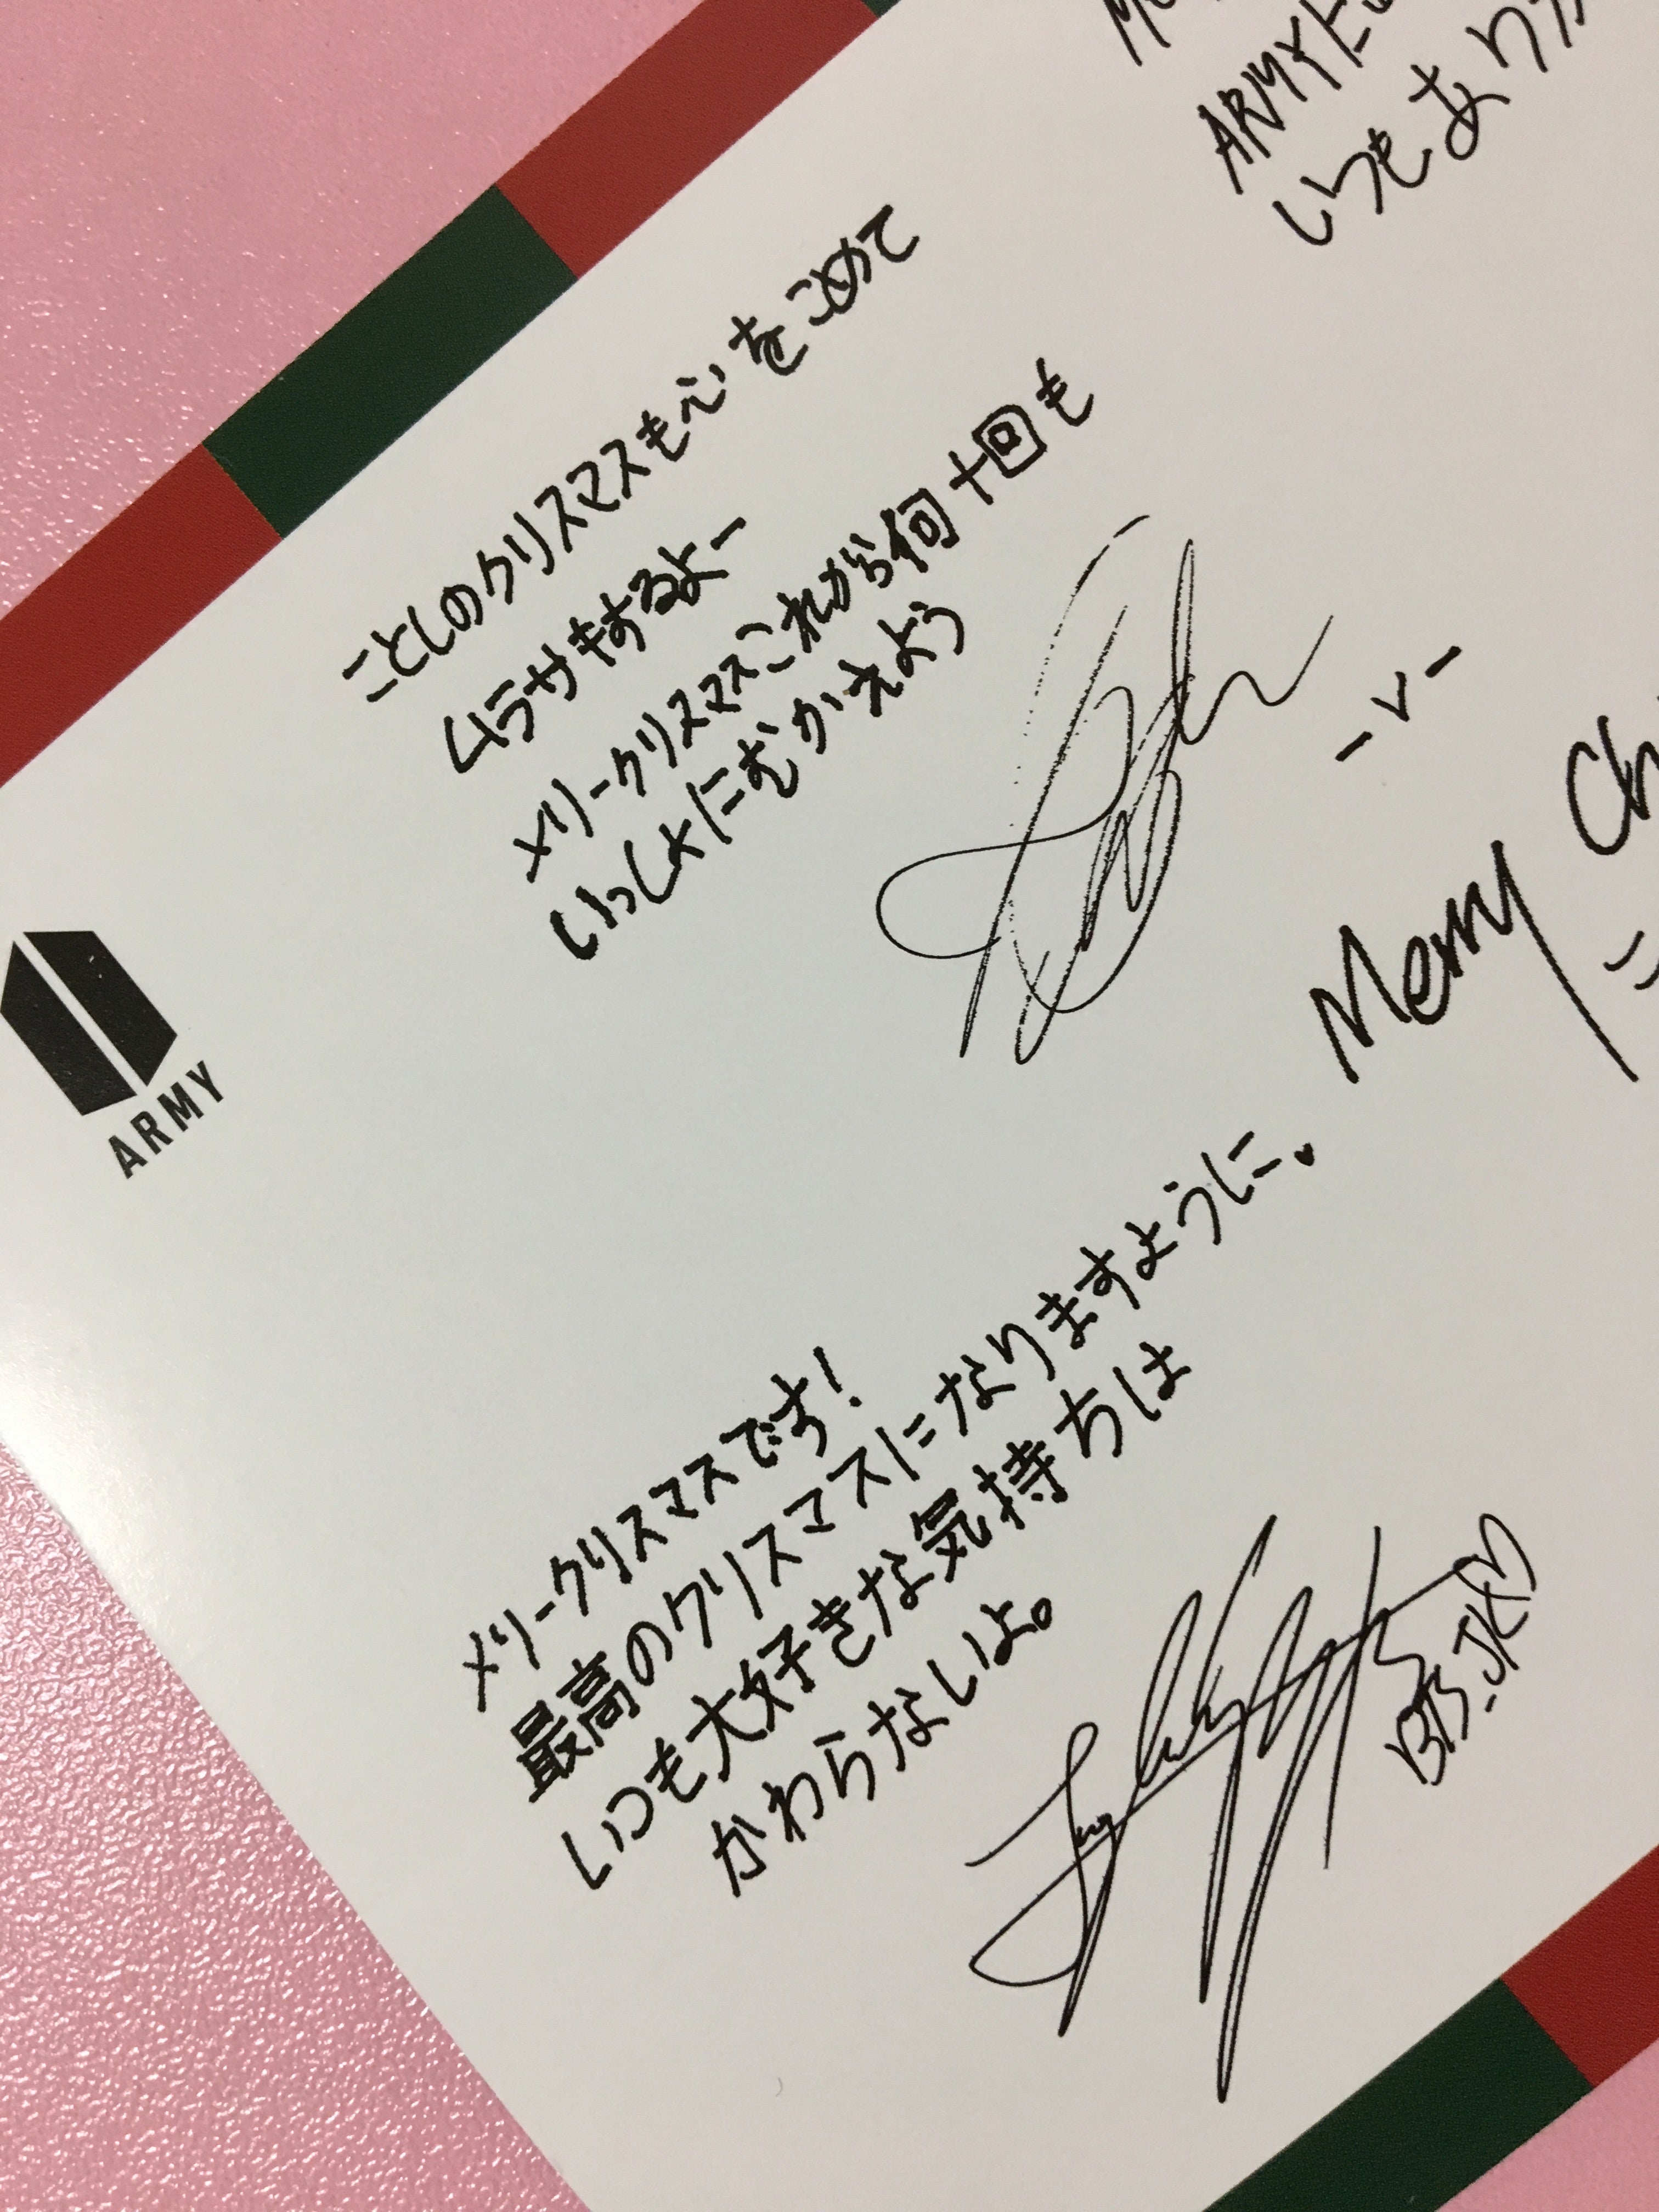 ARMYに
いつもあり
ことしのクリスマスも心をこめて
ムラサキするよー
メリークリスマスこれから何十回も
いっしょにむかえよう
-V-
ARMY
Merry Ch
メリークリスマスです!
最高のクリスマスになりますように。
いつも大好きな気持ちは
かわらないよ。
BTS_JK